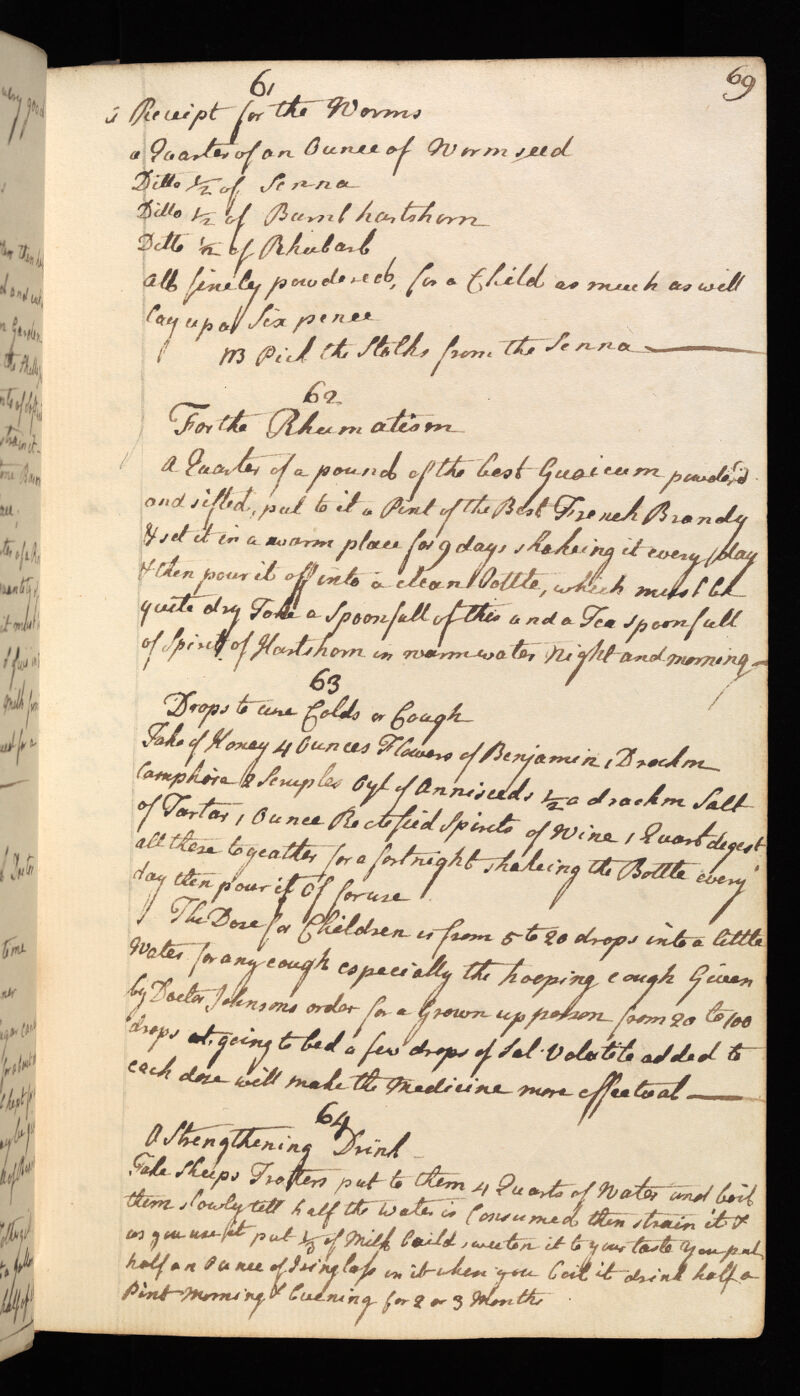 69
61
a Receipt for the Worms
a Quarter of an Ounce of Wormseed
Ditto 1/2 of Senna
Ditto 1/2 of Burnt hartshorn
Ditto 1/2 of Rhubarb
all finely powdered, for a Child as much as will
lay upon Six pence
NB Pick the Stalks from the Senna
62
For the Rhumatism
A Quarter of a pound of the best Guaicum powder'd
and sifted, put to it a Pint of the Best French Brandy
& set it in a warm place for 9 days shakeing it every day
& then pour it off into a clean bottle, which must be
quite dry Take a Spoonfull of this and a Tea spoonfull
of Spirit of Hartshorn in warm water Night and morning
63
Drops to cure Colds or Cough
Take of Honey 4 Ounces Flowers of Benjamin 1 Drachm
Camphire 2 Scruples Oyl of Anniseeds 1/2 a drachm Salt
of Tartar 1 Ounce Rectefied Spirits of Wine 1 Quart degest
all these togeather for a fortnight shakeing the Bottle every
day then pour it of for use
The Dose for Children is from 5 to 20 drops into a little
Water for any cough especially the hooping cough Given
by Doctor Johnsons order for a Grown up person from 20 to 100
drops at going to bed a few drops of Sal Volatile added to
each dose will make the Medicine more effectual
64
A Strengthening Drink
Take Sheeps Trotters put to them 4 Quarts of Water and boil
them slowly till half the water is Consumed then strain it &
as you use it put 1/2 of Milk boild, sweeten it to your taste You put
half an Ounce of Isinglass in it when you boil it drink half a
Pint Morning & Evening for 2 or 3 Months